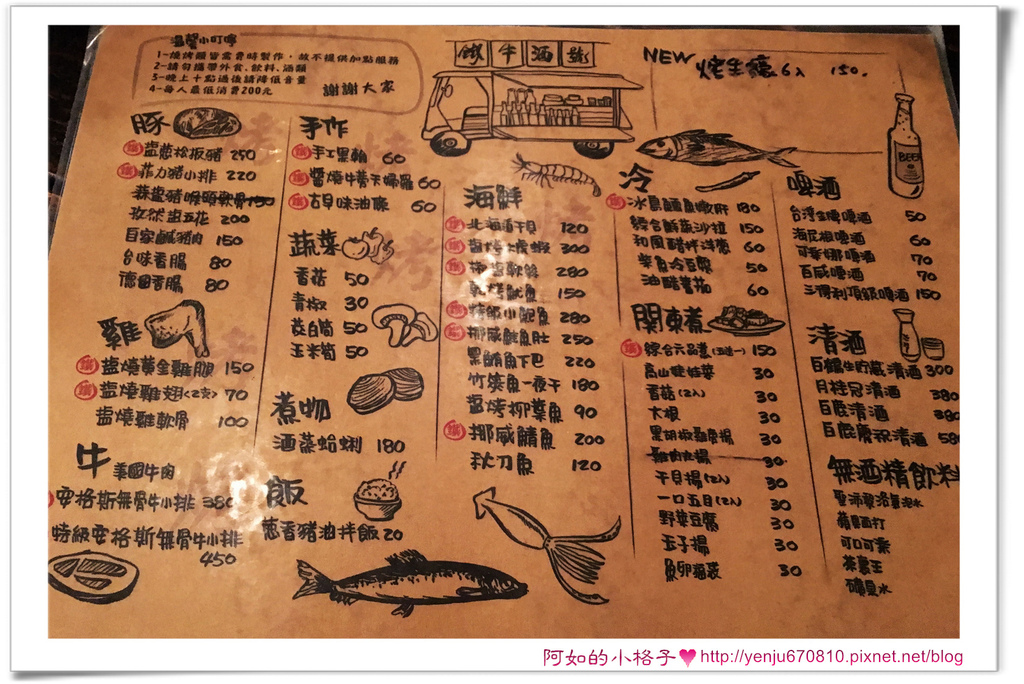 溫馨小叮嚀
1-燒烤類皆需費時製作，故不提供加點服務
2-請勿攜帶外食、飲料、酒類
3-晚上十點過後請降低音量
4-每人最低消費200元
謝謝大家
鐵牛酒號
NEW 烤生蠔6入 150.
豚
鹽蔥松板豬 250
菲力豬小排 220
蒜鹽豬喉頭軟骨 150
孜然串五花 200
自家鹹豬肉 150
台味香腸 80
德國香腸 80
雞
鹽燒黃金雞腿 150
鹽燒雞翅<2支> 70
鹽燒雞軟骨 100
牛 美國牛肉
安格斯無骨牛小排 380
特級安格斯無骨牛小排
450
手作
手工黑輪 60
醬燒牛蒡天婦羅 60
古早味油條 60
蔬菜
香菇 50
青椒 30
茭白筍 50
玉米筍 50
煮物
酒蒸蛤蜊 180
飯
蔥香豬油拌飯 20
海鮮
北海道干貝 120
鹽烤大蝦 300
軟絲 280
魷魚 150
小肥魚 280
挪威鮭魚肚 250
黑鮪魚下巴 220
竹筴魚一夜干 180
鹽烤柳葉魚 90
挪威鯖魚 200
秋刀魚 120
冷
冰島鱈魚嫩肝 180
綜合鮮蔬沙拉 150
和風醋拌洋蔥 60
柴魚冷豆腐 50
油醋番茄 60
關東煮
綜合六品煮(三選一) 150
高山娃娃菜 30
香菇(2入) 30
大根 30
黑胡椒 30
雞肉丸揚 30
干貝揚(2入) 30
一口五目(2入) 30
野菜豆腐 30
玉子揚 30
魚卵福袋 30
啤酒
台灣金牌啤酒 50
海尼根啤酒 60
可樂娜啤酒 70
百威啤酒 70
三得利頂級啤酒 150
BEER
清酒
白鶴生貯藏清酒 300
月桂冠清酒 380
白鹿清酒 380
白鹿慶祝清酒 580
無酒精飲料
蘋果西打
可口可樂
茶裏王
礦泉水
阿如的小格子♥http://yenju670810.pixnet.net/blog